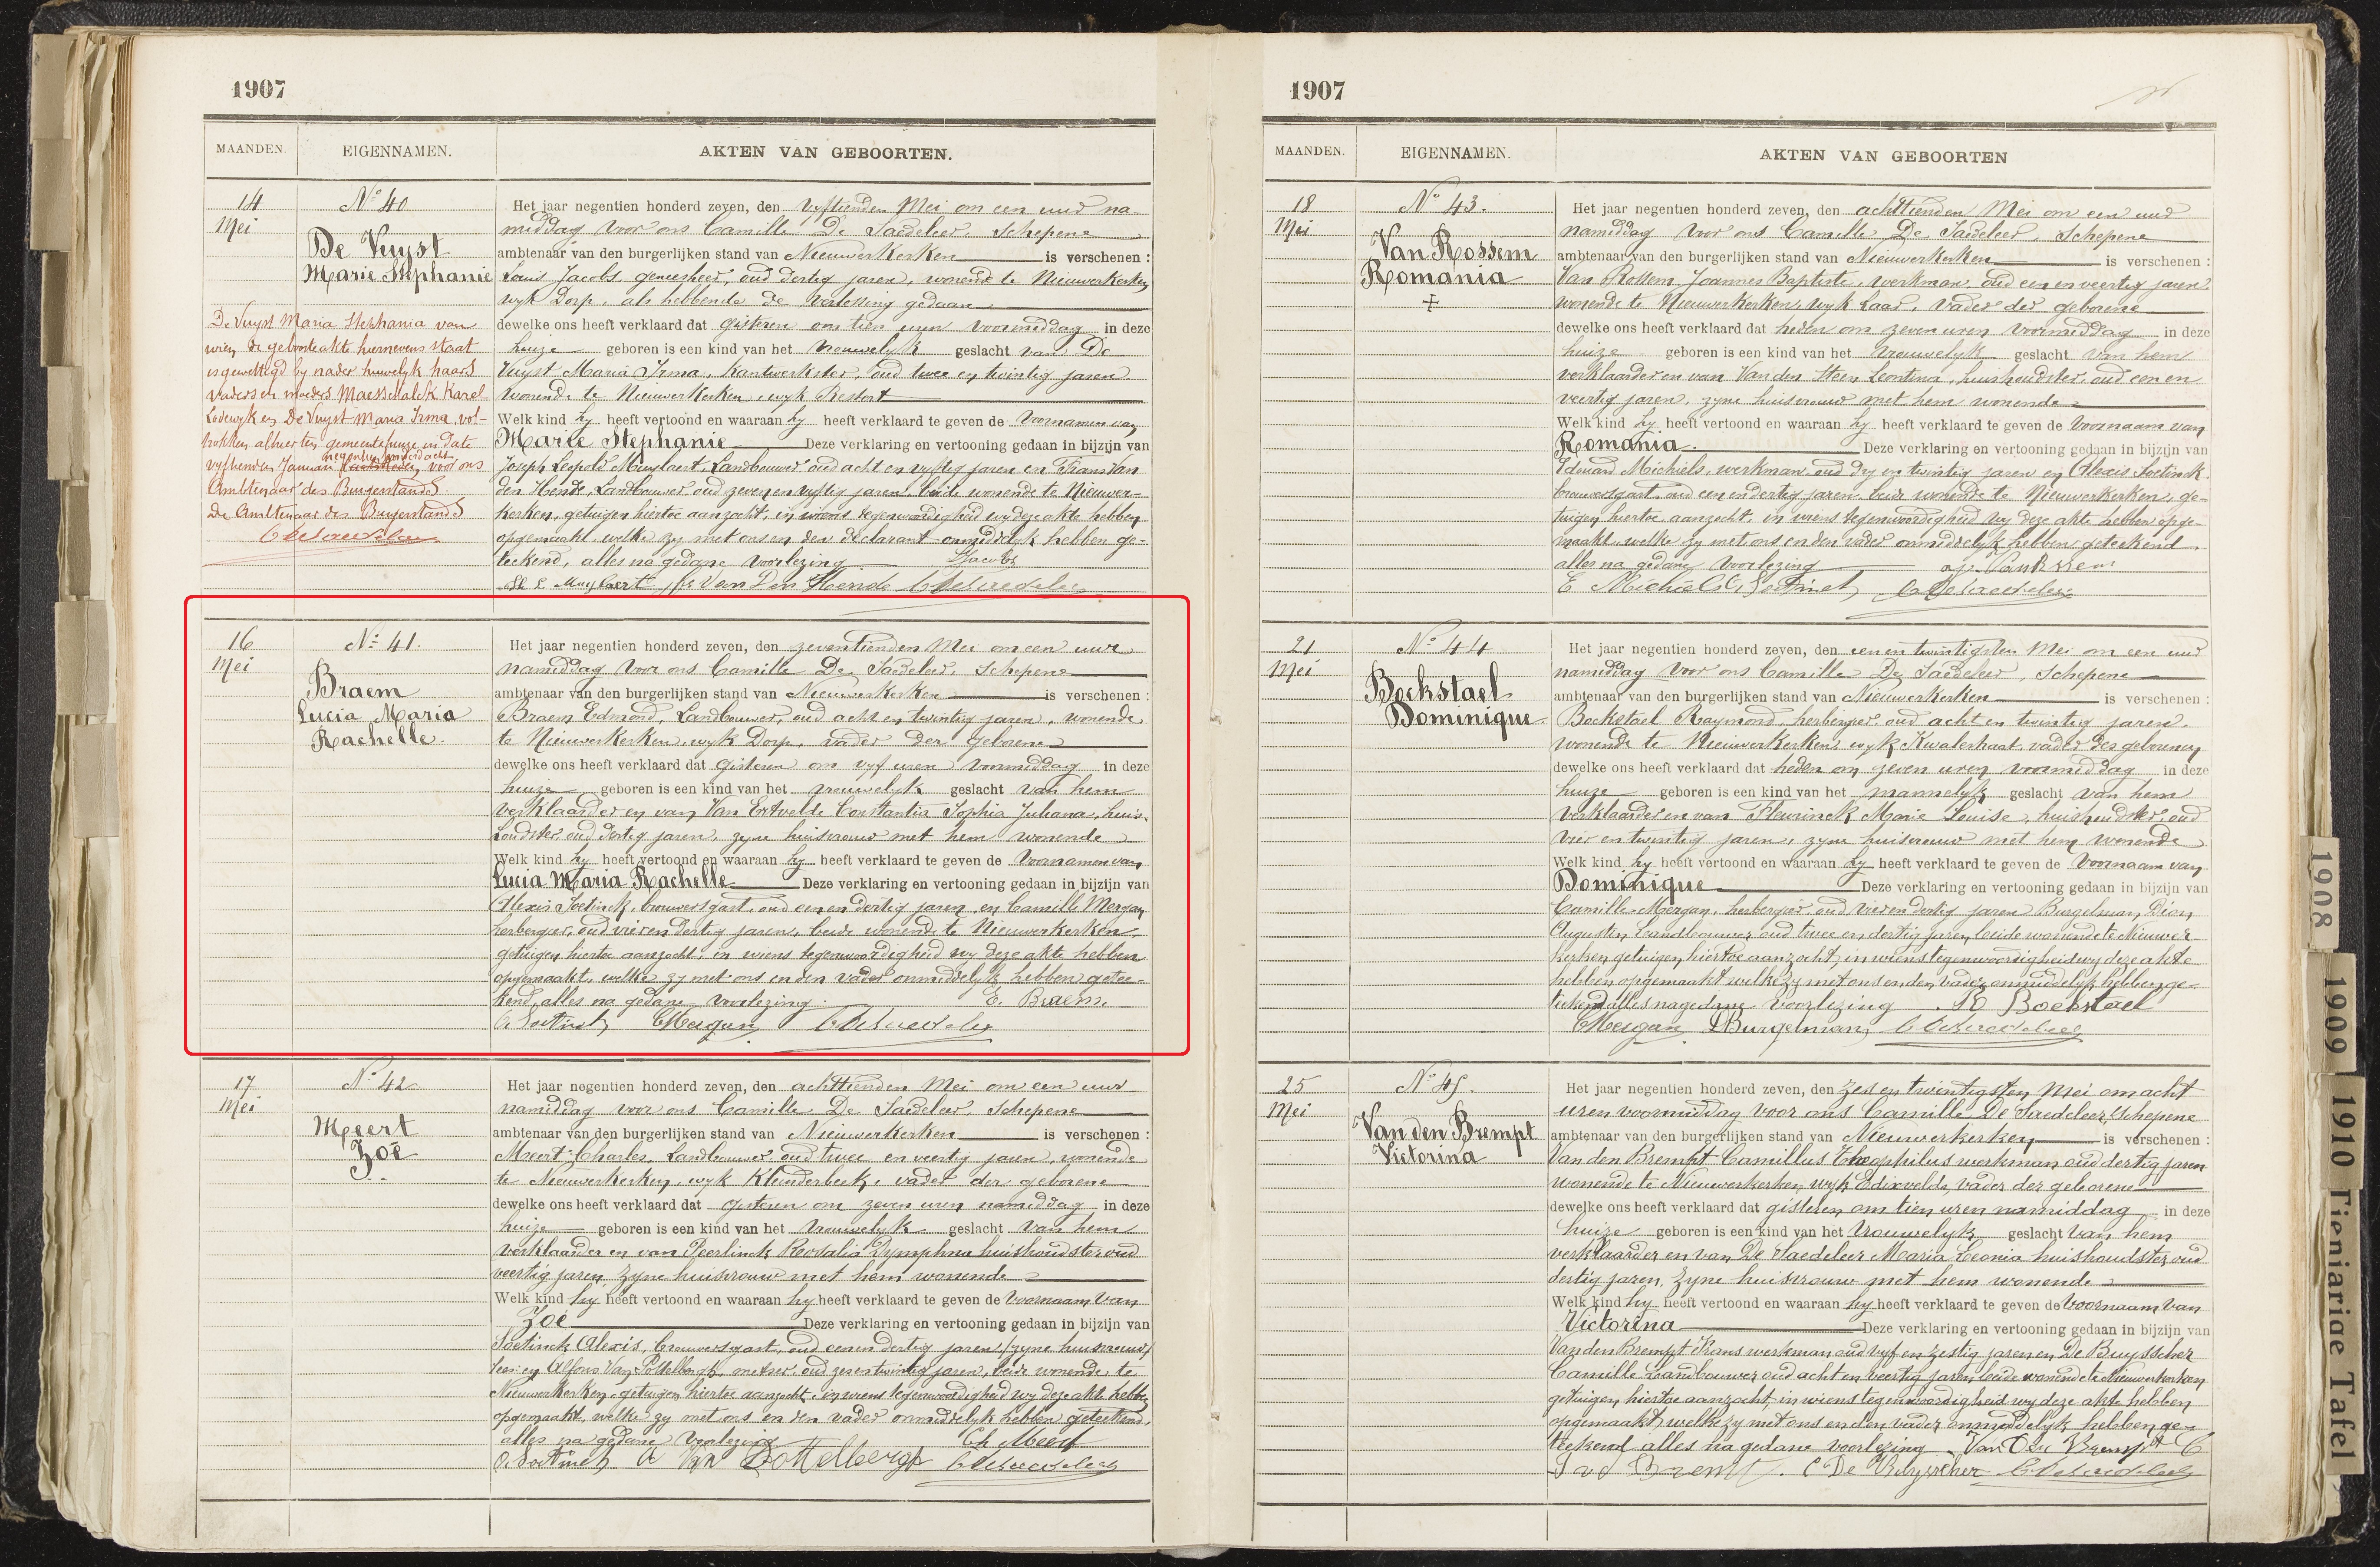 1907
MAANDEN. EIGENNAMEN. AKTEN VAN GEBOORTEN.
14 Mei
Nº 40
De Vuyst
Marie Stephanie
Het jaar negentien honderd zeven, den vyftienden Mei om een uur na-
middag voor ons Camille De Saedeleer, Schepene
ambtenaar van den burgerlijken stand van Nieuwerkerken is verschenen :
Louis Jacobs, geneesheer, oud dertig jaren, wonende te Nieuwerkerken
wyk Dorp, als hebbende de verlossing gedaan
dewelke ons heeft verklaard dat gisteren om tien uren voormiddag in deze
huize geboren is een kind van het vrouwelyk geslacht van De
Vuyst Maria Irma, kantwerkster, oud twee en twintig jaren
wonende te Nieuwerkerken, wyk Ressort
Welk kind hy heeft vertoond en waaraan hy heeft verklaard te geven de voornamen van
Marie Stephanie Deze verklaring en vertooning gedaan in bijzijn van
Joseph Leopold Muylaert, Landbouwer oud acht en vyftig jaren en Frans Van
den Hende, Landbouwer oud zeven en vyftig jaren, beide wonende te Nieuwer-
kerken, getuigen hiertoe aanzocht, in wiens tegenwoordigheid wy deze akte hebben
opgemaakt, welke zy met ons en den declarant onmiddelyk hebben ge-
teekend, alles na gedane voorlezing Jacobs
Muylaert Van Den Hende C De Saedeleer
De Vuyst Maria Stephania van
wien de geboorteakte hiernevens staat
is gewettigd by nader huwelyk haars
vaders en moeders Maesschalck Karel
Lodewyk en De Vuyst Maria Irma, vol-
trokken alhier ten gemeentehuize in date
vyftienden Januari negentien honderd acht, voor ons
Ambtenaar des Burgerstands
De Ambtenaar des Burgerstands
C De Saedeleer
16 Mei
Nº 41.
Braem
Lucia Maria
Rachelle.
Het jaar negentien honderd zeven, den zeventienden Mei om een uur
namiddag voor ons Camille De Saedeleer, Schepene
ambtenaar van den burgerlijken stand van Nieuwerkerken is verschenen :
Braem Edmond, Landbouwer, oud acht en twintig jaren, wonende
te Nieuwerkerken, wyk Dorp, vader der geborene
dewelke ons heeft verklaard dat gisteren om vyf uren voormiddag in deze
huize geboren is een kind van het vrouwelyk geslacht van hem
verklaarder en van Van Extvelde Constantia Sophia Juliana, huis-
houdster, oud dertig jaren, zyne huisvrouw met hem wonende
Welk kind hy heeft vertoond en waaraan hy heeft verklaard te geven de voornamen van
Lucia Maria Rachelle Deze verklaring en vertooning gedaan in bijzijn van
Alexis Soetinck, brouwersgast, oud een en dertig jaren en Camille Mergan
herbergier, oud vier en dertig jaren, beide wonende te Nieuwerkerken,
getuigen hiertoe aanzocht, in wiens tegenwoordigheid wy deze akte hebben
opgemaakt, welke zy met ons en den vader onmiddelyk hebben getee-
kend, alles na gedane voorlezing. E. Braem
A Soetinck CMergan C De Saedeleer
17 Mei
Nº 42
Meert
Zoë
Het jaar negentien honderd zeven, den achttienden Mei om een uur
namiddag voor ons Camille De Saedeleer, Schepene
ambtenaar van den burgerlijken stand van Nieuwerkerken is verschenen :
Meert Charles, Landbouwer, oud twee en veertig jaren, wonende
te Nieuwerkerken, wyk Kleinderbeek, vader der geborene
dewelke ons heeft verklaard dat gisteren om zeven uren namiddag in deze
huize geboren is een kind van het vrouwelyk geslacht van hem
verklaarder en van Peerlinck Rosalia Dymphna huishoudster oud
veertig jaren, zyne huisvrouw met hem wonende
Welk kind hy heeft vertoond en waaraan hy heeft verklaard te geven de voornaam van
Zoë Deze verklaring en vertooning gedaan in bijzijn van
Soetinck Alexis, brouwersgast, oud een en dertig jaren /zyne huisvrouw/
en Alfons Van Pottelbergh, metser, oud zes en twintig jaren, beide wonende te
Nieuwerkerken, getuigen hiertoe aanzocht, in wiens tegenwoordigheid wy deze akte hebben
opgemaakt, welke zy met ons en den vader onmiddelyk hebben geteekend,
alles na gedane voorlezing Ch Meert
A Soetinck A Van Pottelbergh C De Saedeleer
1907
MAANDEN. EIGENNAMEN. AKTEN VAN GEBOORTEN
18 Mei
Nº 43.
Van Rossem
Romania
+
Het jaar negentien honderd zeven, den achttienden Mei om een uur
namiddag voor ons Camille De Saedeleer, Schepene
ambtenaar van den burgerlijken stand van Nieuwerkerken is verschenen :
Van Rossem Joannes Baptiste, werkman, oud een en veertig jaren
wonende te Nieuwerkerken, wyk Laar, vader der geborene
dewelke ons heeft verklaard dat heden om zeven uren voormiddag in deze
huize geboren is een kind van het vrouwelyk geslacht van hem
verklaarder en van Van den Steen Leontina, huishoudster, oud een en
veertig jaren, zyne huisvrouw met hem wonende
Welk kind hy heeft vertoond en waaraan hy heeft verklaard te geven de voornaam van
Romania. Deze verklaring en vertooning gedaan in bijzijn van
Edouard Michiels, werkman, oud dry en twintig jaren en Alexis Soetinck
brouwersgast, oud een en dertig jaren, beide wonende te Nieuwerkerken, ge-
tuigen hiertoe aanzocht, in wiens tegenwoordigheid wy deze akte hebben opge-
maakt, welke zy met ons en den vader onmiddelyk hebben geteekend
alles na gedane voorlezing
E Michiels A Soetinck C De Saedeleer
21 Mei
Nº 44
Bockstael
Dominique
Het jaar negentien honderd zeven, den een en twintigsten Mei om een uur
namiddag voor ons Camille De Saedeleer, Schepene
ambtenaar van den burgerlijken stand van Nieuwerkerken is verschenen :
Bockstael Raymond, herbergier, oud acht en twintig jaren,
wonende te Nieuwerkerken, wyk Kwalestraat, vader des geborenen
dewelke ons heeft verklaard dat heden om zeven uren voormiddag in deze
huize geboren is een kind van het mannelyk geslacht van hem
verklaarder en van Fleurinck Marie Louise, huishoudster, oud
vier en twintig jaren, zyne huisvrouw met hem wonende
Welk kind hy heeft vertoond en waaraan hy heeft verklaard te geven de voornaam van
Dominique Deze verklaring en vertooning gedaan in bijzijn van
Camille Mergan, herbergier, oud vier en dertig jaren Burgelman Dion
Augustin, Landbouwer oud twee en dertig jaren, beide wonende te Nieuwer
kerken, getuigen hiertoe aanzocht, in wiens tegenwoordigheid wy deze akte
hebben opgemaakt welke zy met ons en den vader onmiddelyk hebben ge-
teekend alles na gedane voorlezing Bockstael
CMergan DBurgelman C De Saedeleer
25 Mei
Nº 45.
Van den Brempt
Victorina
Het jaar negentien honderd zeven, den zes en twintigsten Mei om acht
uren voormiddag voor ons Camille De Saedeleer, Schepene
ambtenaar van den burgerlijken stand van Nieuwerkerken is verschenen :
Van den Brempt Camillus Theophilus werkman oud dertig jaren
wonende te Nieuwerkerken, wyk Edixvelde, vader der geborene
dewelke ons heeft verklaard dat gisteren om tien uren namiddag in deze
huize geboren is een kind van het vrouwelyk geslacht van hem
verklaarder en van De Saedeleer Maria Leonia huishoudster oud
dertig jaren, zyne huisvrouw met hem wonende
Welk kind hy heeft vertoond en waaraan hy heeft verklaard te geven de voornaam van
Victorina Deze verklaring en vertooning gedaan in bijzijn van
Van den Brempt Frans werkman oud vyf en zestig jaren en De Buysscher
Camille Landbouwer oud acht en veertig jaren, beide wonende te Nieuwerkerken
getuigen hiertoe aanzocht, in wiens tegenwoordigheid wy deze akte hebben
opgemaakt, welke zy met ons en den vader onmiddelyk hebben ge-
teekend alles na gedane voorlezing Van Den Brempt C
C De Buysscher C De Saedeleer
1908
1909
1910 Tienjarige Tafel